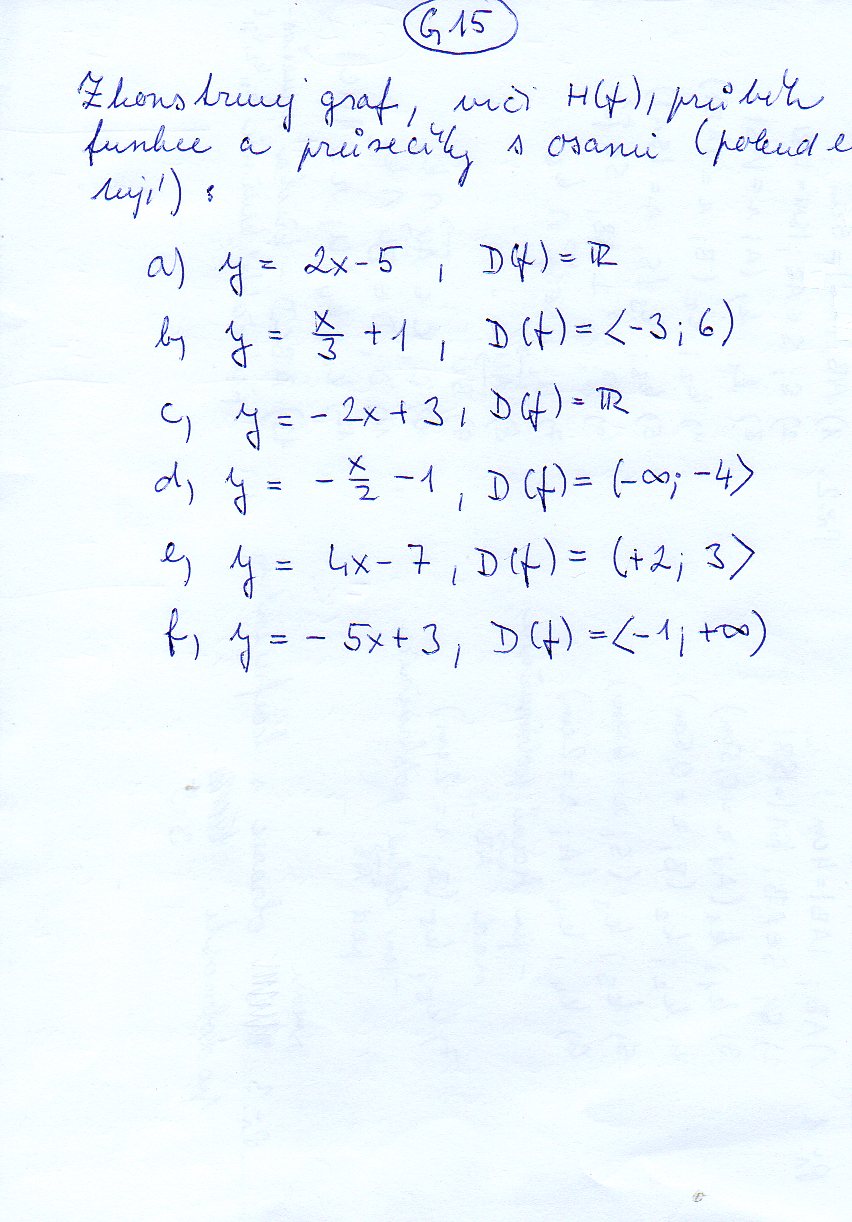 G 15
Zkonstruuj graf, urči H(f), průběh
funkce a průsečíky s osami (pokud e
tují) :
a) y = 2x - 5 , D(f) = ℝ
b) y = x/3 + 1 , D(f) = <-3 ; 6)
c) y = - 2x + 3 , D(f) = ℝ
d) y = - x/2 - 1 , D(f) = (-∞; -4>
e) y = 4x - 7 , D(f) = (+2 ; 3>
f) y = - 5x + 3 , D(f) = <-1 ; +∞)